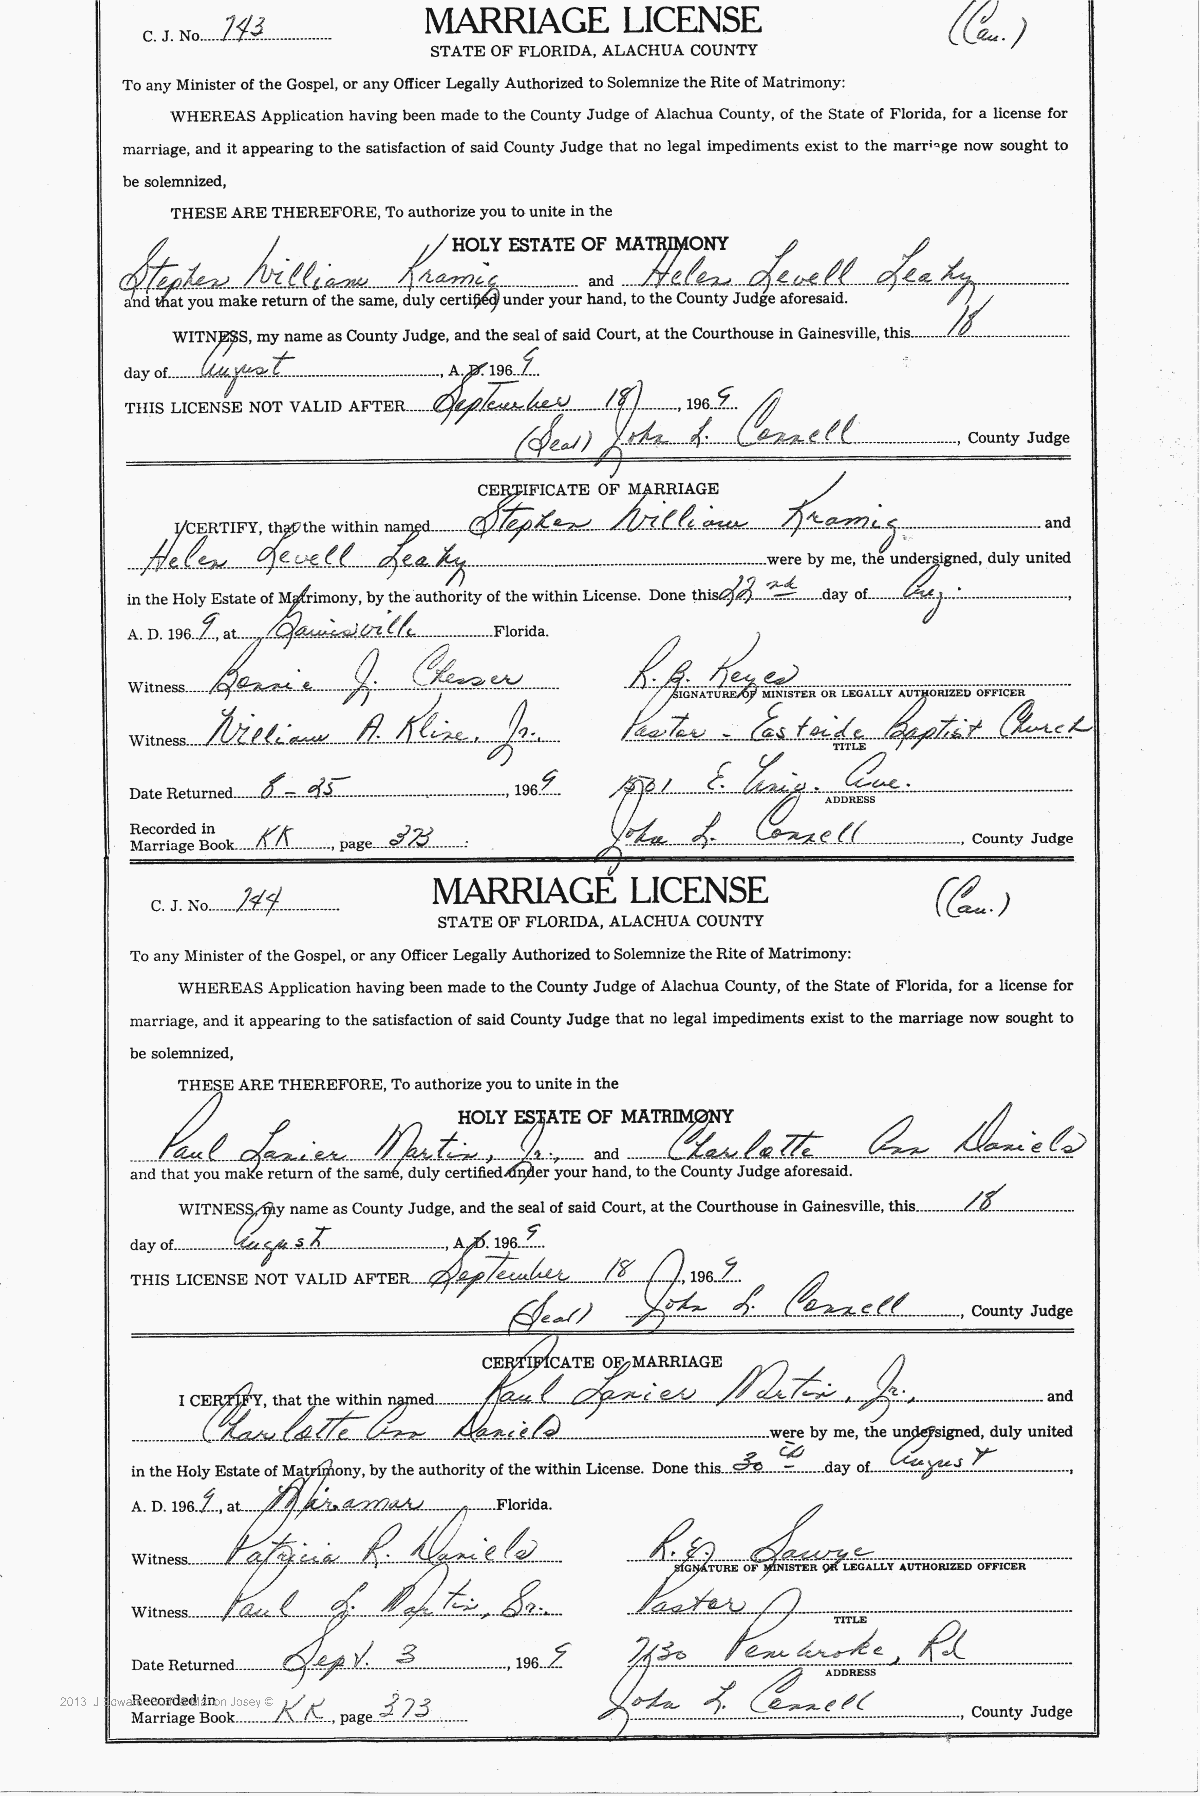 C. J. No. 743 MARRIAGE LICENSE (Cau.)
STATE OF FLORIDA, ALACHUA COUNTY
To any Minister of the Gospel, or any Officer Legally Authorized to Solemnize the Rite of Matrimony:
WHEREAS Application having been made to the County Judge of Alachua County, of the State of Florida, for a license for
marriage, and it appearing to the satisfaction of said County Judge that no legal impediments exist to the marriage now sought to
be solemnized,
THESE ARE THEREFORE, To authorize you to unite in the
HOLY ESTATE OF MATRIMONY
Stephen William Kramig and Helen Levell Leahy
and that you make return of the same, duly certified under your hand, to the County Judge aforesaid.
WITNESS, my name as County Judge, and the seal of said Court, at the Courthouse in Gainesville, this 18
day of August, A. D. 196 9
THIS LICENSE NOT VALID AFTER September 18, 196 9
(Seal) John L. Connell, County Judge
CERTIFICATE OF MARRIAGE
I CERTIFY, that the within named Stephen William Kramig and
Helen Levell Leahy were by me, the undersigned, duly united
in the Holy Estate of Matrimony, by the authority of the within License. Done this 22nd day of Aug.,
A. D. 196 9, at Gainesville Florida.
Witness Bonnie J. Chesser R. B. Keyes
SIGNATURE OF MINISTER OR LEGALLY AUTHORIZED OFFICER
Witness William A. Kline, Jr., Pastor - Eastside Baptist Church
TITLE
Date Returned 8-25, 196 9 1501 E. Univ. Ave.
ADDRESS
Recorded in
Marriage Book KK, page 373 John L. Connell, County Judge
C. J. No. 744 MARRIAGE LICENSE (Cau.)
STATE OF FLORIDA, ALACHUA COUNTY
To any Minister of the Gospel, or any Officer Legally Authorized to Solemnize the Rite of Matrimony:
WHEREAS Application having been made to the County Judge of Alachua County, of the State of Florida, for a license for
marriage, and it appearing to the satisfaction of said County Judge that no legal impediments exist to the marriage now sought to
be solemnized,
THESE ARE THEREFORE, To authorize you to unite in the
HOLY ESTATE OF MATRIMONY
Paul Lanier Martin, Jr., and Charlotte Ann Daniels
and that you make return of the same, duly certified under your hand, to the County Judge aforesaid.
WITNESS, my name as County Judge, and the seal of said Court, at the Courthouse in Gainesville, this 18
day of August, A. D. 196 9
THIS LICENSE NOT VALID AFTER September 18, 196 9
(Seal) John L. Connell, County Judge
CERTIFICATE OF MARRIAGE
I CERTIFY, that the within named Paul Lanier Martin, Jr., and
Charlotte Ann Daniels were by me, the undersigned, duly united
in the Holy Estate of Matrimony, by the authority of the within License. Done this 30th day of August,
A. D. 196 9, at Miramar Florida.
Witness Patricia R. Daniels R. E. Sawye
SIGNATURE OF MINISTER OR LEGALLY AUTHORIZED OFFICER
Witness Paul L. Martin, Sr., Pastor
TITLE
Date Returned Sept. 3, 196 9 7130 Pembroke, Rd
ADDRESS
Recorded in
Marriage Book KK, page 373 John L. Connell, County Judge
2013 J Josey ©